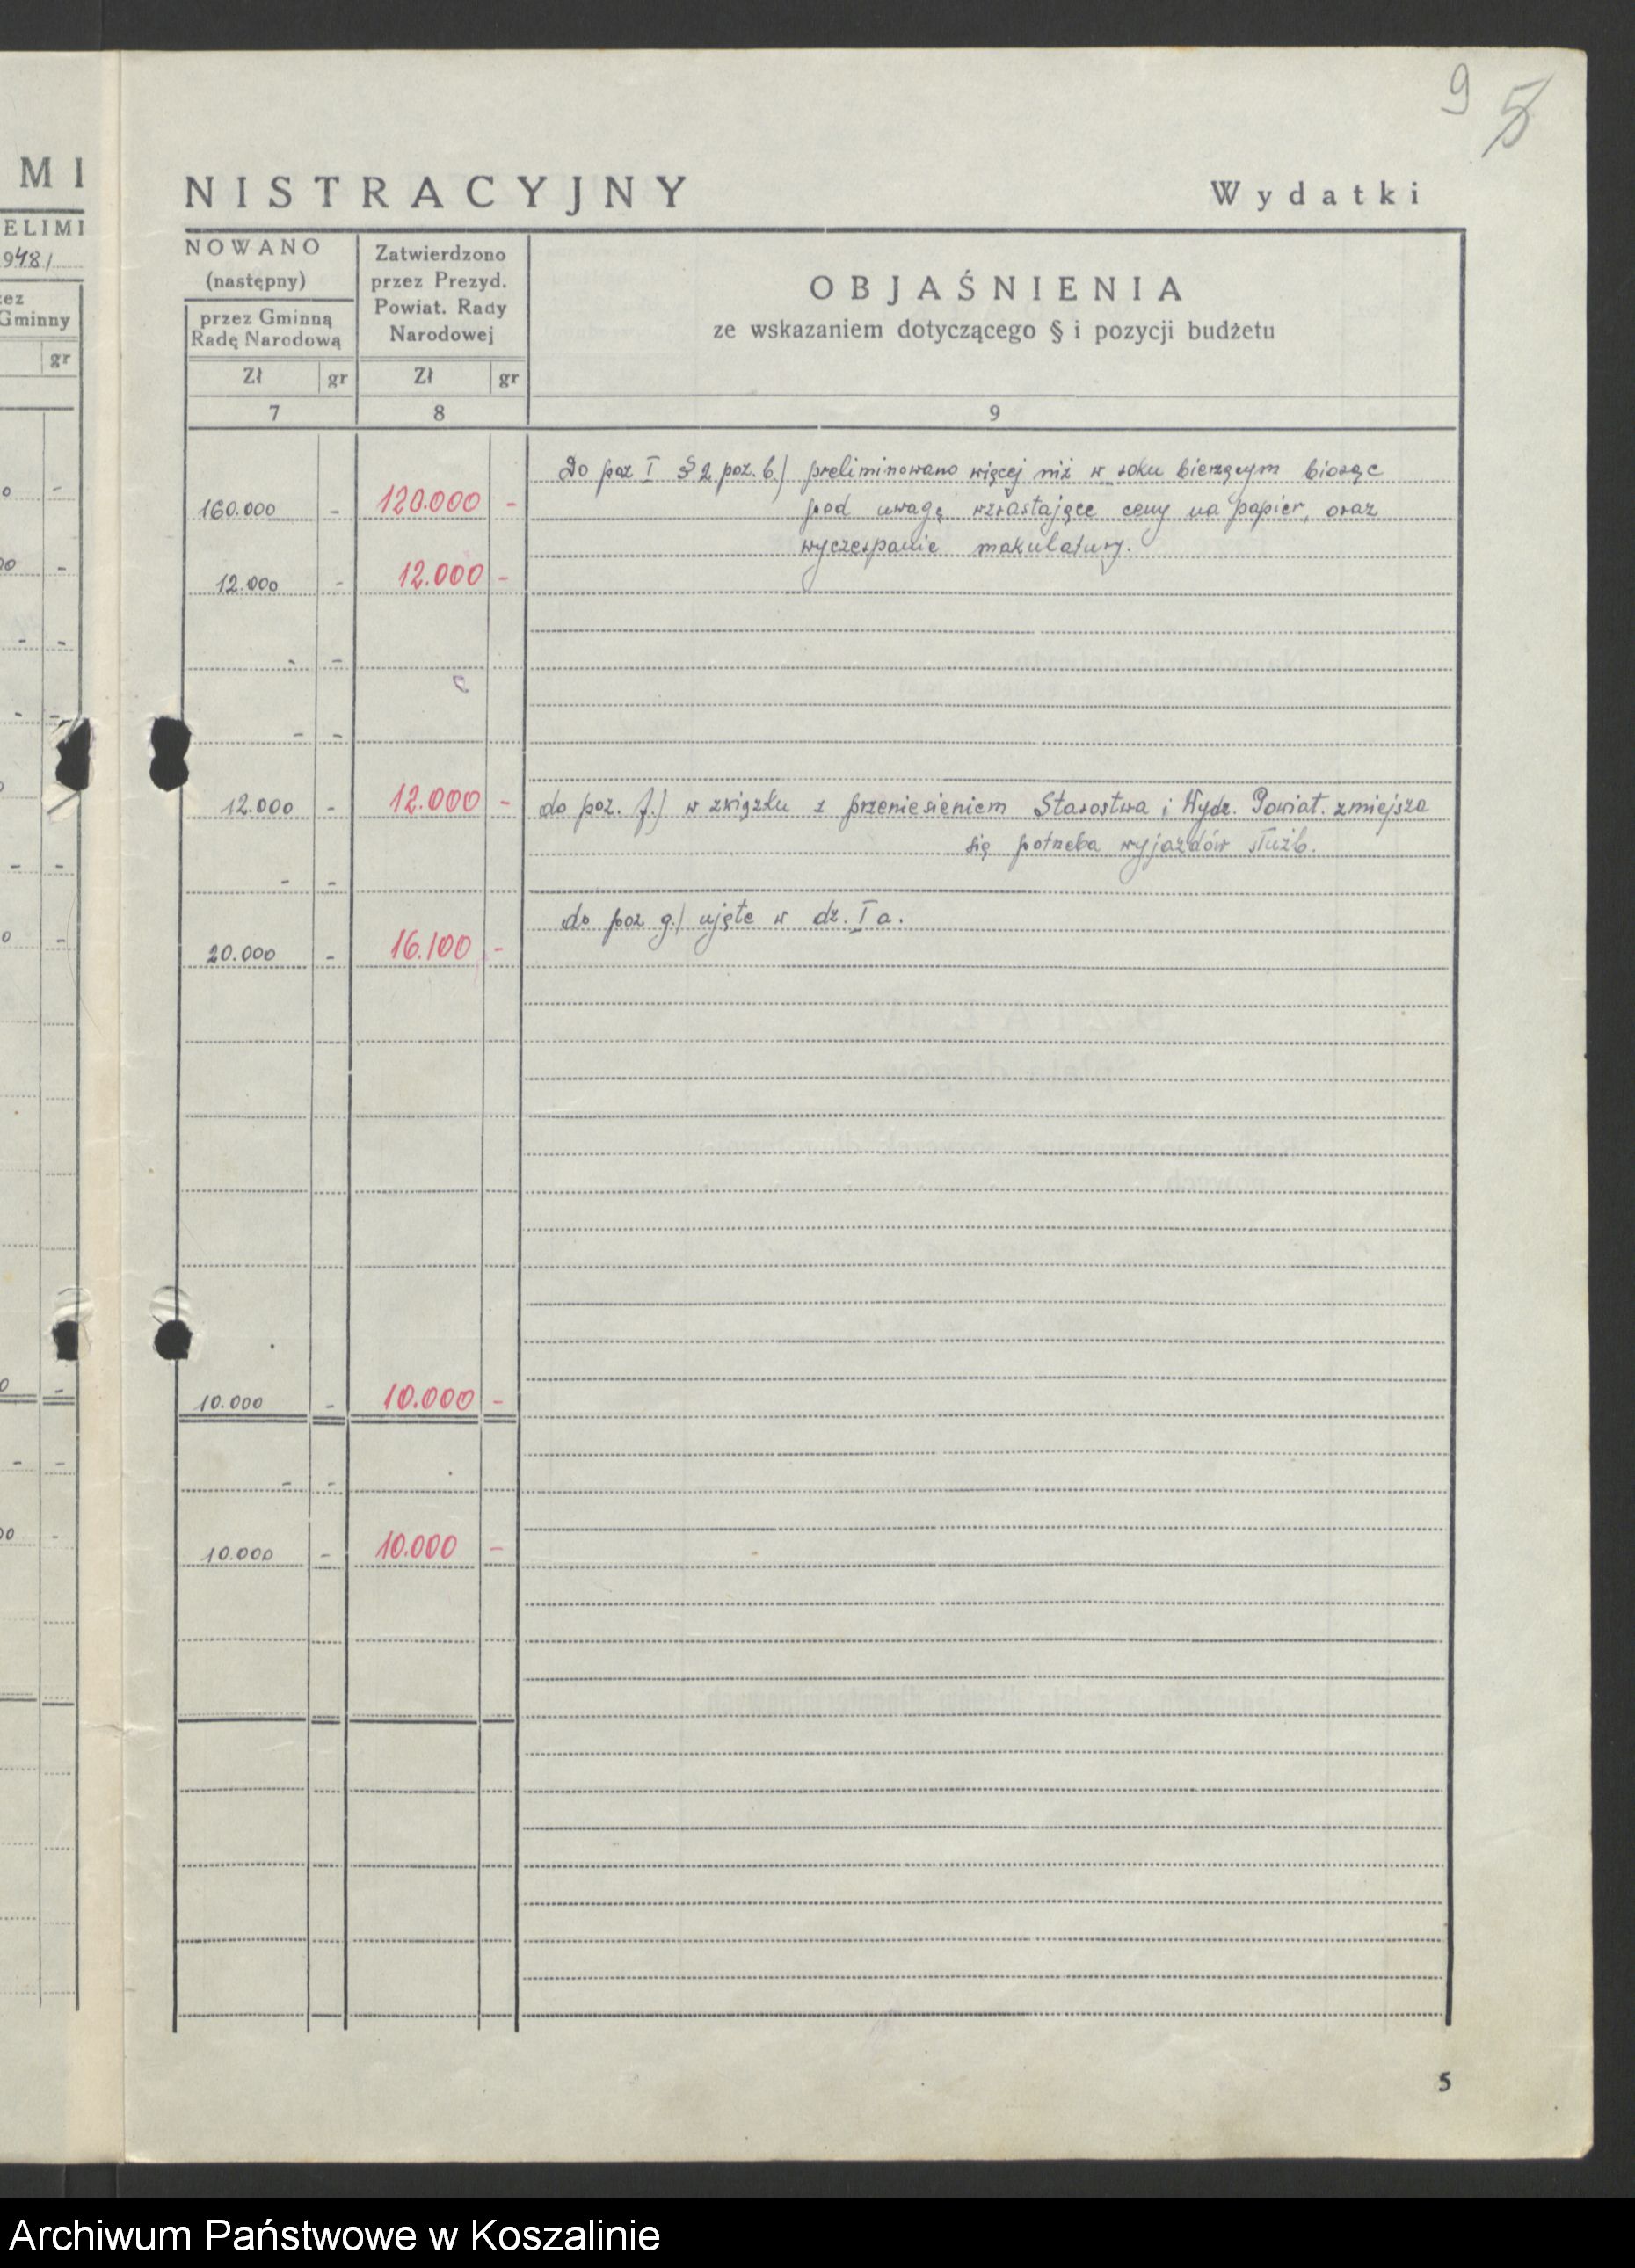 9 5
M I
NISTRACYJNY Wydatki
ELIMI
1948/
zez
Gminny
gr
NOWANO
(następny)
przez Gminną
Radę Narodową
Zł gr
7
Zatwierdzono
przez Prezyd.
Powiat. Rady
Narodowej
Zł gr
8
OBJAŚNIENIA
ze wskazaniem dotyczącego § i pozycji budżetu
9
Do poz I § 2 poz. b.) preliminowano więcej niż w roku bierzącym biorąc
160.000 - 120.000 - pod uwagę wzrastające ceny na papier, oraz
wyczerpanie makulatury.
12.000 - 12.000 -
- -
- -
12.000 - 12.000 - do poz. f.) w związku z przeniesieniem Starostwa i Wydz. Powiat. zmiejsza
się potrzeba wyjazdów służb.
- -
do poz g.) ujęte w dz. I a.
20.000 - 16.100 -
10.000 - 10.000 -
- -
10.000 - 10.000 -
5
Archiwum Państwowe w Koszalinie